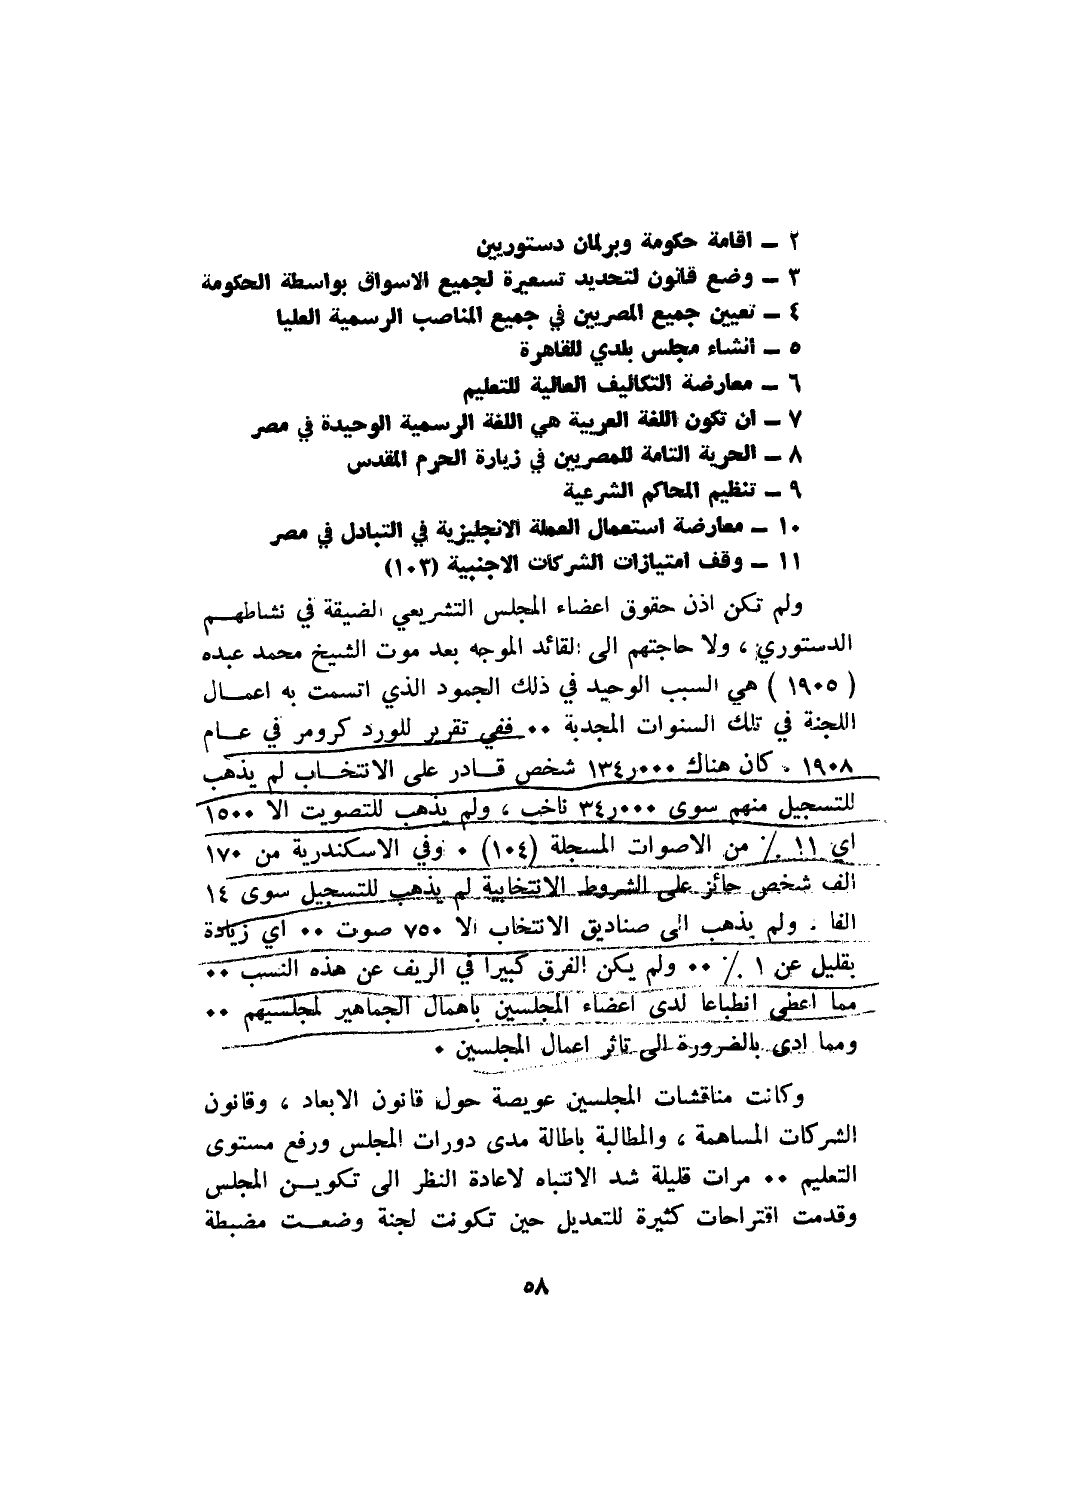 ٢ – اقامة حكومة وبرلمان دستوريين
٣ – وضع قانون لتحديد تسعيرة لجميع الاسواق بواسطة الحكومة
٤ – تعيين جميع المصريين في جميع المناصب الرسمية العليا
٥ – انشاء مجلس بلدي للقاهرة
٦ – معارضة التكاليف العالية للتعليم
٧ – ان تكون اللغة العربية هي اللغة الرسمية الوحيدة في مصر
٨ – الحرية التامة للمصريين في زيارة الحرم المقدس
٩ – تنظيم المحاكم الشرعية
١٠ – معارضة استعمال العملة الانجليزية في التبادل في مصر
١١ – وقف امتيازات الشركات الاجنبية (١٠٣)
ولم تكن اذن حقوق اعضاء المجلس التشريعي الضيقة في نشاطهــم
الدستوري ، ولا حاجتهم الى القائد الموجه بعد موت الشيخ محمد عبده
( ١٩٠٥ ) هي السبب الوحيد في ذلك الجمود الذي اتسمت به اعمــال
اللجنة في تلك السنوات المجدبة ٠٠ ففي تقرير للورد كرومر في عــام
١٩٠٨ . كان هناك ١٣٤ر٠٠٠ شخص قــادر على الانتخـاب لم يذهب
للتسجيل منهم سوى ٣٤ر٠٠٠ ناخب ، ولم يذهب للتصويت الا ١٥٠٠
اي ١١ ٪ من الاصوات المسجلة (١٠٤) ٠ وفي الاسكندرية من ١٧٠
الف شخص حائز على الشروط الانتخابية لم يذهب للتسجيل سوى ١٤
الفا . ولم يذهب الى صناديق الانتخاب الا ٧٥٠ صوت ٠٠ اي زيادة
بقليل عن ١ ٪ ٠٠ ولم يكن الفرق كبيرا في الريف عن هذه النسب ٠٠
مما اعطى انطباعا لدى اعضاء المجلسين باهمال الجماهير لمجلسيهم ٠٠
ومما ادى بالضرورة الى تاثر اعمال المجلسين ٠
وكانت مناقشات المجلسين عويصة حول قانون الابعاد ، وقانون
الشركات المساهمة ، والمطالبة باطالة مدى دورات المجلس ورفع مستوى
التعليم ٠٠ مرات قليلة شد الانتباه لاعادة النظر الى تكويــن المجلس
وقدمت اقتراحات كثيرة للتعديل حين تكونت لجنة وضعــت مضبطة
٥٨